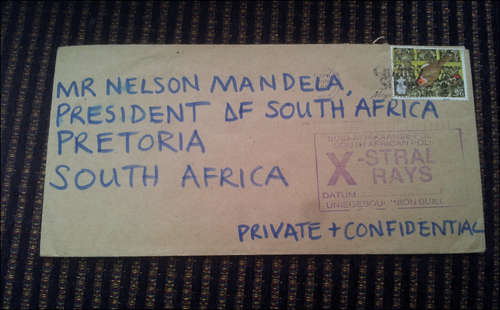 MR NELSON MANDELA,
PRESIDENT OF SOUTH AFRICA
PRETORIA
SOUTH AFRICA
SOUTH AFRICAN POLI
X-STRAL
RAYS
DATUM
UNIEGEBOU/UNION BUILD
PRIVATE + CONFIDENTIAL